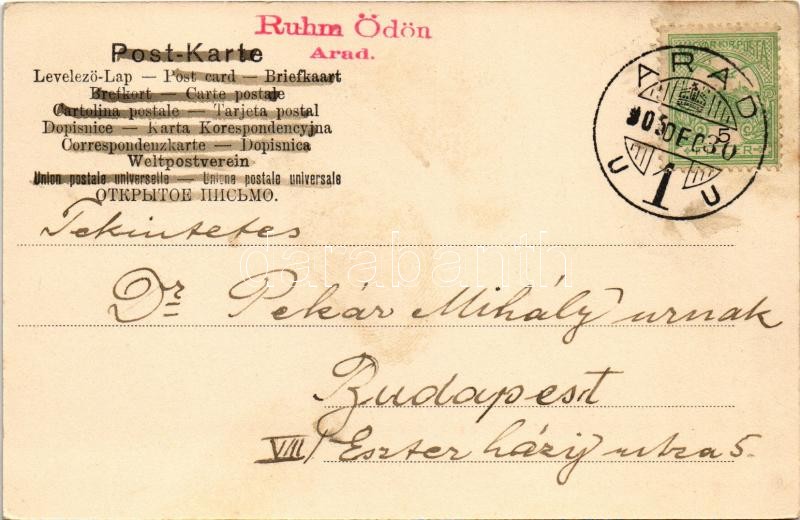 Ruhm Ödön
Arad.
Post-Karte
Levelezö-Lap — Post card — Briefkaart
Brefkort — Carte postale
Cartolina postale — Tarjeta postal
Dopisnice — Karta Korespondencyjna
Correspondenzkarte — Dopisnica
Weltpostverein
Union postale universelle — Unione postale universale
ОТКРЫТОЕ ПИСЬМО.
MAGYAR KIR. POSTA
5
ARAD
905 DEC 30
U 1 U
Tekintetes
Dr Pekár Mihály urnak
Budapest
VIII/ Eszterházy utca 5.
darabanth